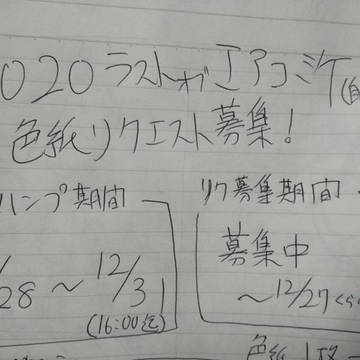 2020ラストオブエアコミケ(自
色紙リクエスト募集!
ハンプ期間
/28~12/31
(16:00迄)
リク募集期間
募集中
~12/27
色紙1枚